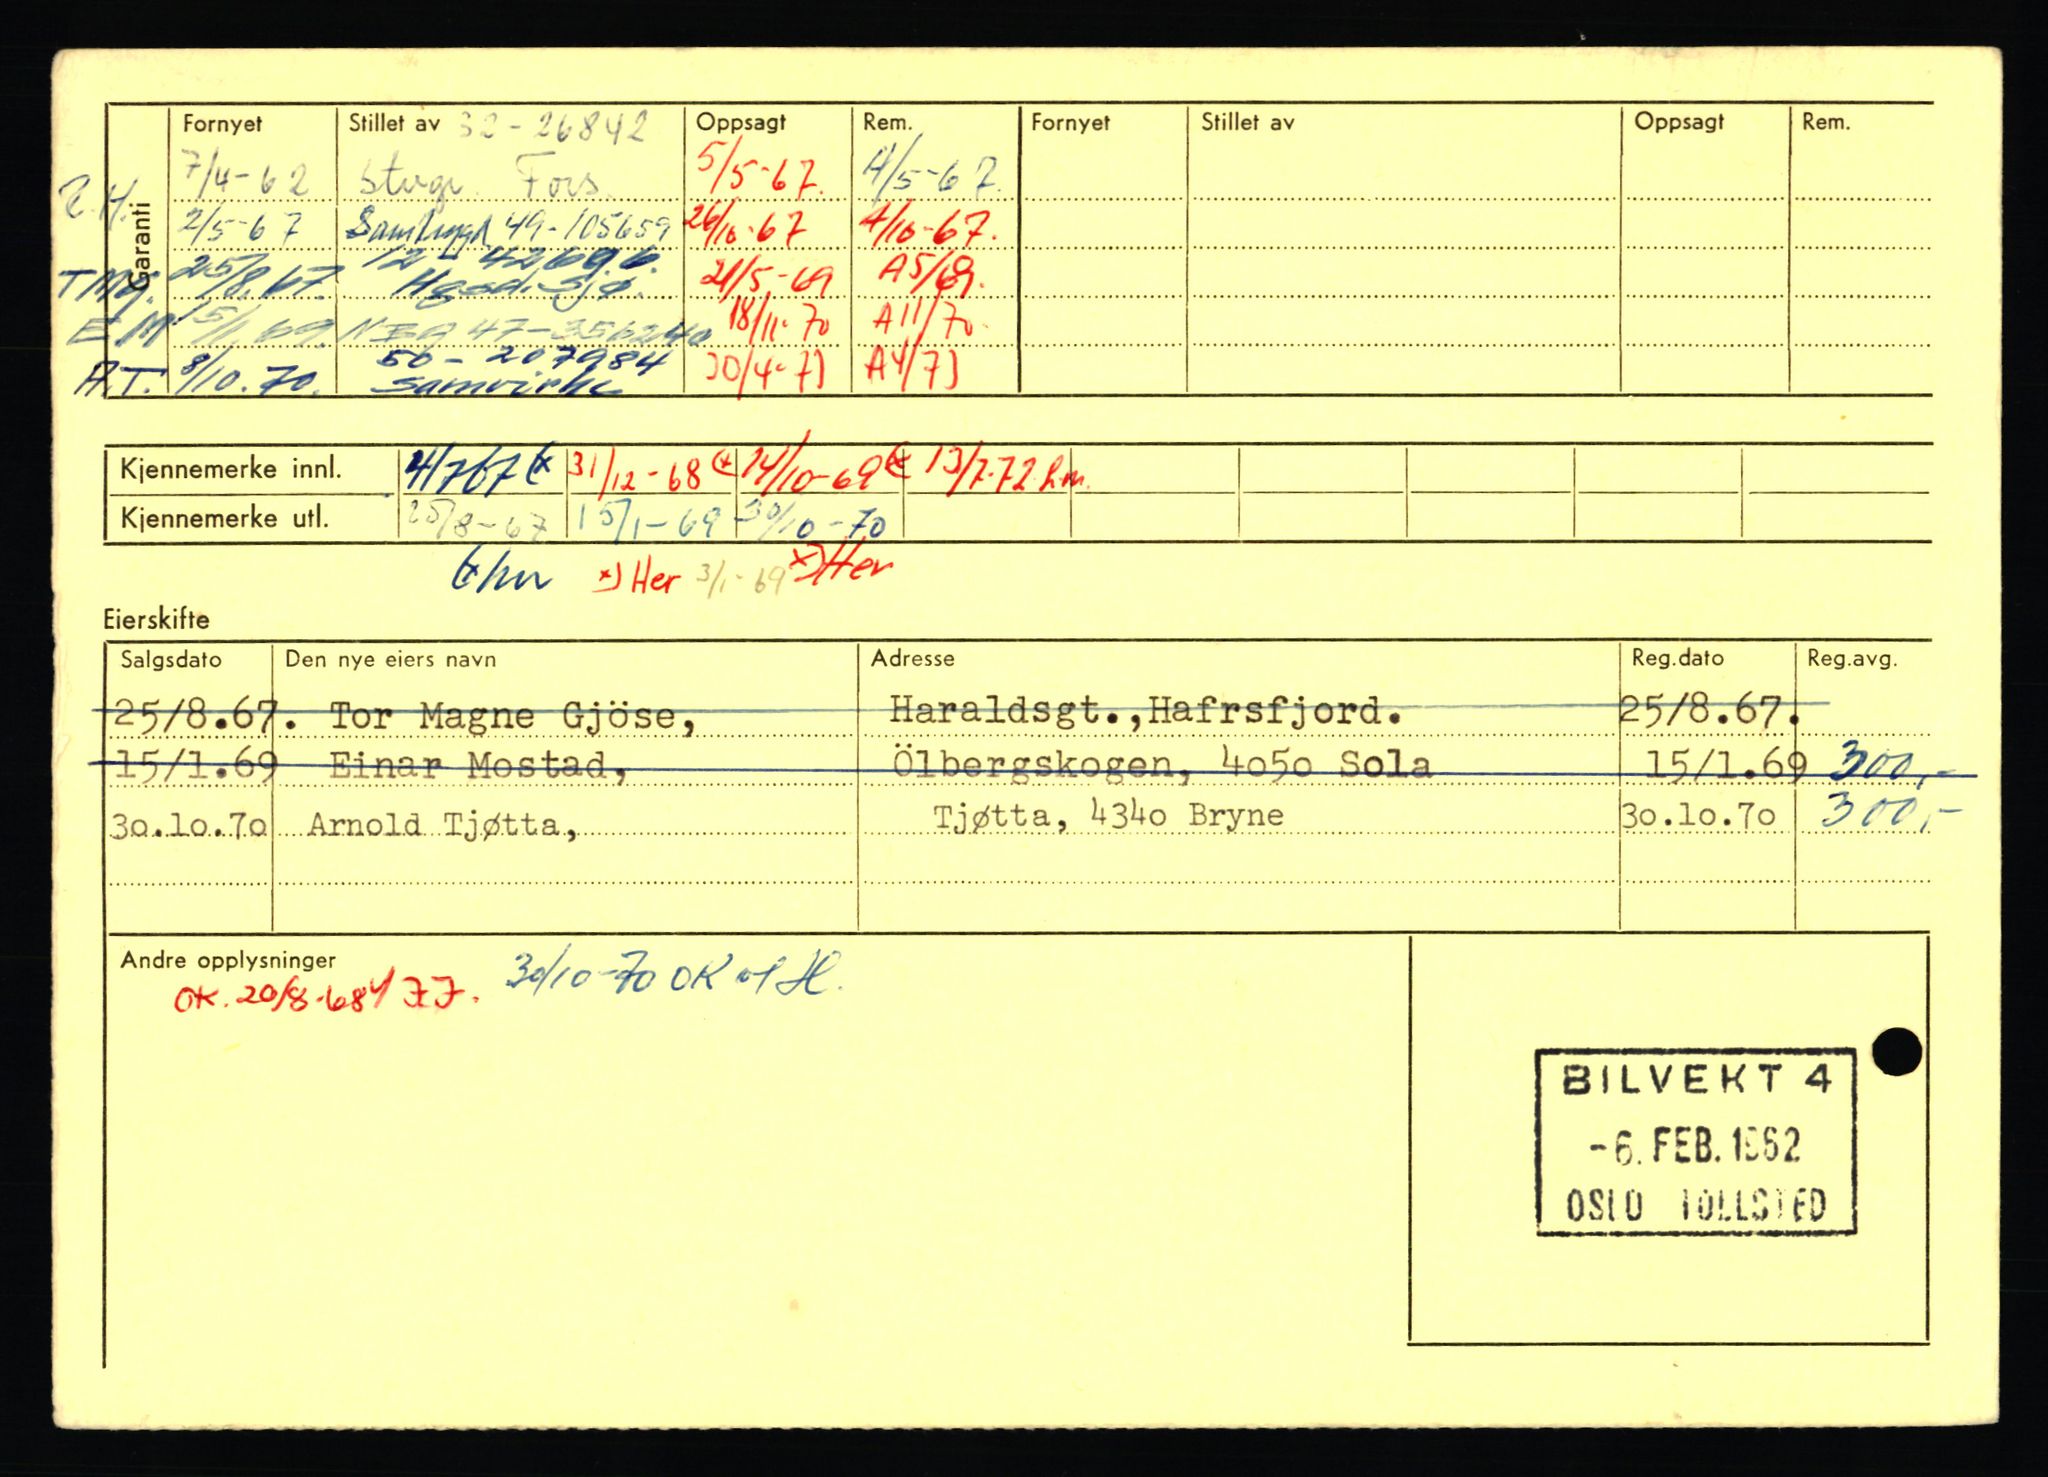 Garanti
Fornyet Stillet av 32-26842 Oppsagt Rem. Fornyet Stillet av Oppsagt Rem.
7/4-62 Stvgr. Fors. 5/5-67. A/5-67.
2/5-67 49-105659 26/10-67 A/10-67.
25/8.67. 21/5-69 A5/69.
E M 15/1.69. 47-356240 18/11-70 A11/70.
50-207984
A.T. 8/10.70. Samvirke 30/4-73 A4/73
Kjennemerke innl. 4/7 67 (x 31/12-68 (x 14/10-69 (x 13/7.72 h.m.
Kjennemerke utl. 25/8-67 15/1-69 30/10-70
x) Her 3/1-69 x) Her
Eierskifte
Salgsdato Den nye eiers navn Adresse Reg.dato Reg.avg.
25/8.67. Tor Magne Gjöse, Haraldsgt.,Hafrsfjord. 25/8.67.
15/1.69 Einar Mostad, Ölbergskogen, 4050 Sola 15/1.69 300,-
30.10.70 Arnold Tjøtta, Tjøtta, 4340 Bryne 30.10.70 300,-
Andre opplysninger
OK. 20/8-68 30/10-70 OK
BILVEKT 4
-6. FEB. 1962
OSLO TOLLSTED